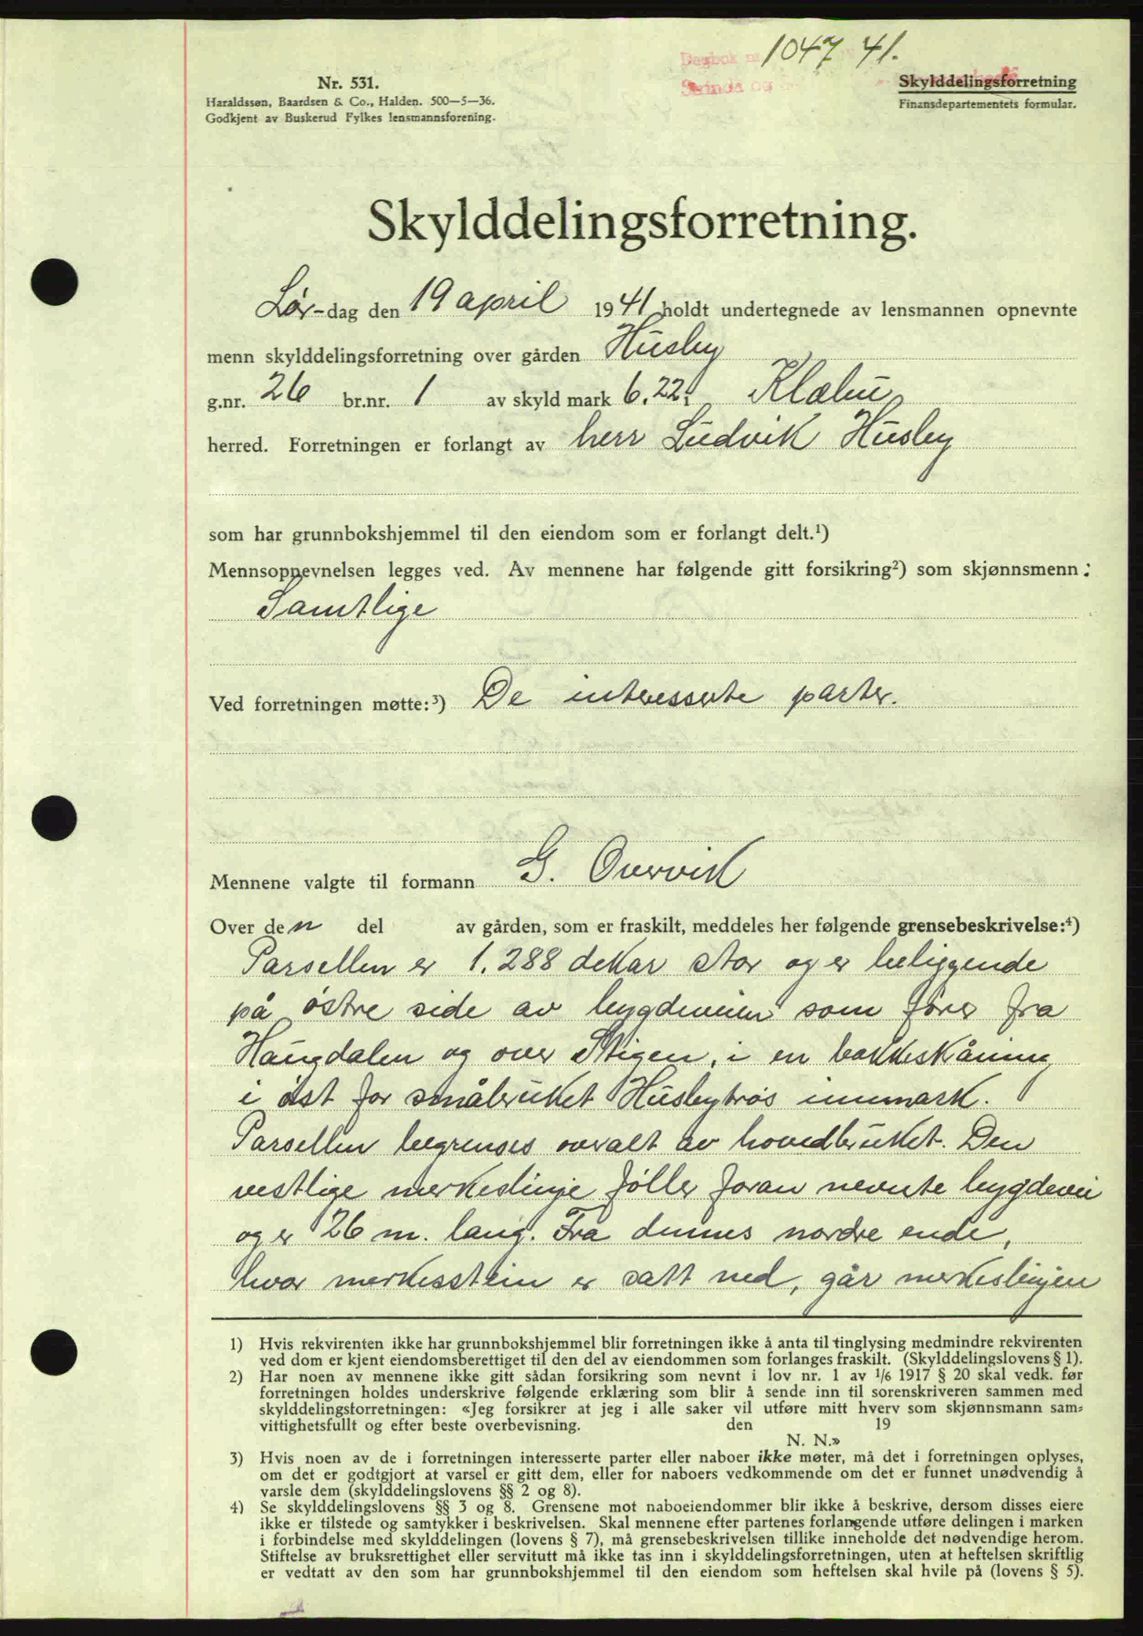 1047 41.
Dagbok n
Strinda og
Nr. 531.
Haraldssøn, Baardsen & Co., Halden. 500—5—36.
Godkjent av Buskerud Fylkes lensmannsforening.
Skylddelingsforretning
Finansdepartementets formular.
Skylddelingsforretning.
Lør-dag den 19 april 1941 holdt undertegnede av lensmannen opnevnte
menn skylddelingsforretning over gården Husby
g.nr. 26 br.nr. 1 av skyld mark 6.22 i Klæbu
herred. Forretningen er forlangt av herr Ludvik Husby
som har grunnbokshjemmel til den eiendom som er forlangt delt.¹)
Mennsopnevnelsen legges ved. Av mennene har følgende gitt forsikring²) som skjønnsmenn:
Samtlige
Ved forretningen møtte:³) De interesserte parter.
Mennene valgte til formann G. Overvik
Over den del av gården, som er fraskilt, meddeles her følgende grensebeskrivelse:⁴)
Parsellen er 1.288 dekar stor og er beliggende
på østre side av bygdeveien som fører fra
Haugdalen og over Stigen, i en bakkeskåning
i øst for småbruket Husbytrøs innmark.
Parsellen begrenses overalt av hovedbruket. Den
vestlige merkeslinje føller foran nevnte bygdevei
og er 26 m. lang. Fra dennes nordre ende,
hvor merkesstein er satt ned, går merkeslinjen
1) Hvis rekvirenten ikke har grunnbokshjemmel blir forretningen ikke å anta til tinglysing medmindre rekvirenten
ved dom er kjent eiendomsberettiget til den del av eiendommen som forlanges fraskilt. (Skylddelingslovens § 1).
2) Har noen av mennene ikke gitt sådan forsikring som nevnt i lov nr. 1 av ¹/₆ 1917 § 20 skal vedk. før
forretningen holdes underskrive følgende erklæring som blir å sende inn til sorenskriveren sammen med
skylddelingsforretningen: «Jeg forsikrer at jeg i alle saker vil utføre mitt hverv som skjønnsmann sam-
vittighetsfullt og efter beste overbevisning. den 19
N. N.»
3) Hvis noen av de i forretningen interesserte parter eller naboer ikke møter, må det i forretningen oplyses,
om det er godtgjort at varsel er gitt dem, eller for naboers vedkommende om det er funnet unødvendig å
varsle dem (skylddelingslovens §§ 2 og 8).
4) Se skylddelingslovens §§ 3 og 8. Grensene mot naboeiendommer blir ikke å beskrive, dersom disses eiere
ikke er tilstede og samtykker i beskrivelsen. Skal mennene efter partenes forlangende utføre delingen i marken
i forbindelse med skylddelingen (lovens § 7), må grensebeskrivelsen tillike inneholde det nødvendige herom.
Stiftelse av bruksrettighet eller servitutt må ikke tas inn i skylddelingsforretningen, uten at heftelsen skriftlig
er vedtatt av den som har grunnbokshjemmel til den eiendom som heftelsen skal hvile på (lovens § 5).